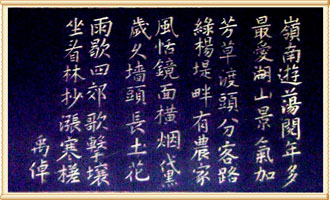 嶺南遊蕩閱年多
最愛湖山景氣加
芳草渡頭分客路
綠楊堤畔有農家
風恬鏡面橫烟黛
歲久墙頭長土花
雨歇四郊歌擊壤
坐看林抄漲寒槎
禹倬